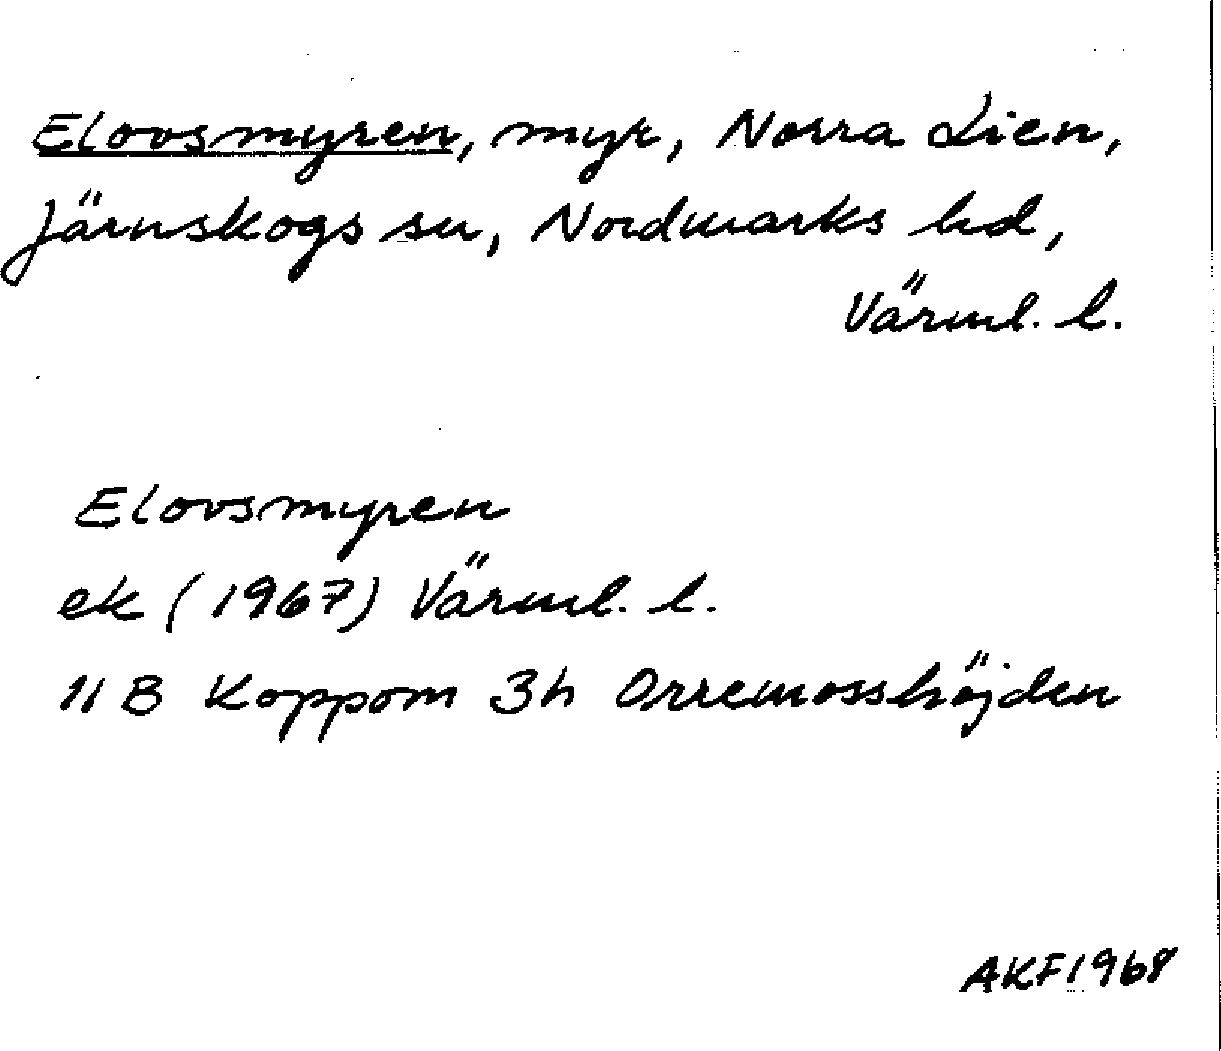 Elovsmyren, myr, Norra Lien,
Järnskogs sn, Nordmarks hd,
Värml. l.
Elovsmyren
ek (1967) Värml. l.
11 B Koppom 3h Orremosshöjden
AKF 1968